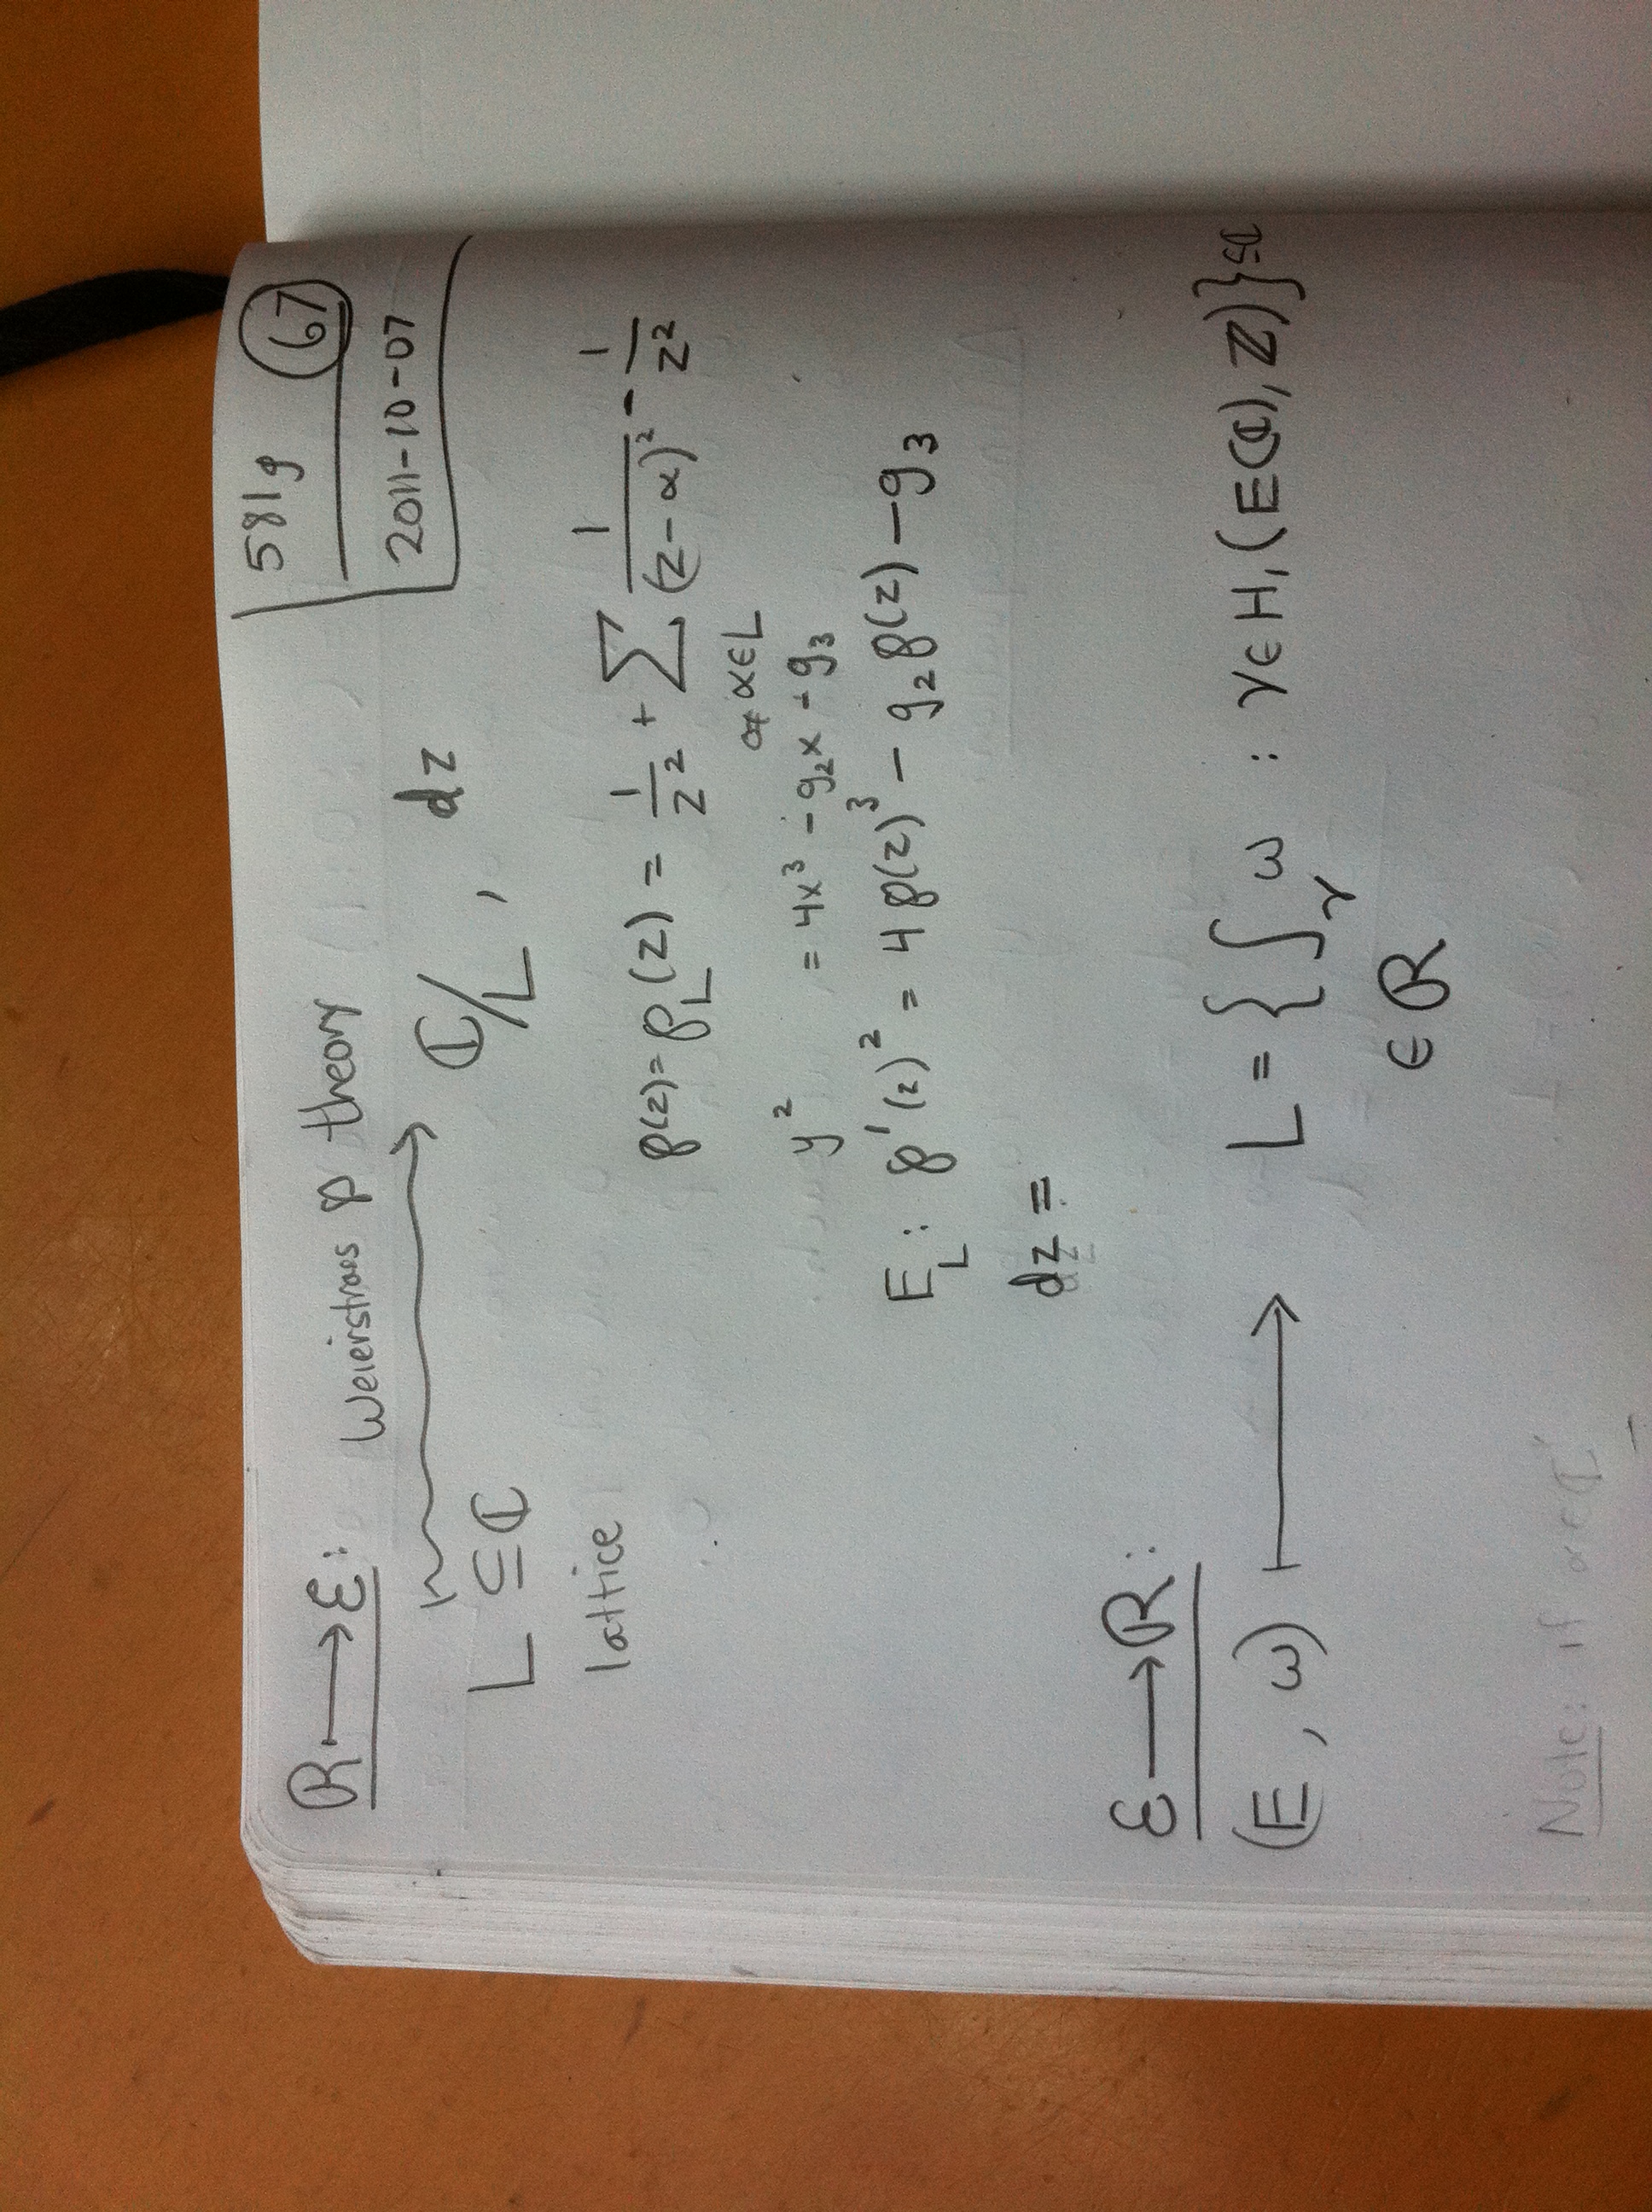 581g 67
2011-10-07
R → ℰ: Weierstrass ℘ theory
L ⊆ ℂ ⟼ ℂ/L , dz
lattice
℘(z) = ℘_L(z) = 1/z² + ∑_{0≠α∈L} 1/(z-α)² - 1/z²
y² = 4x³ - g₂x - g₃
E_L : ℘'(z)² = 4℘(z)³ - g₂℘(z) - g₃
dz =
ℰ → R:
(E, ω) ⟼ L = { ∫_γ ω : γ ∈ H₁(E(ℂ), ℤ)} ⊆ ℂ
∈ R
Note: if α∈ℂ